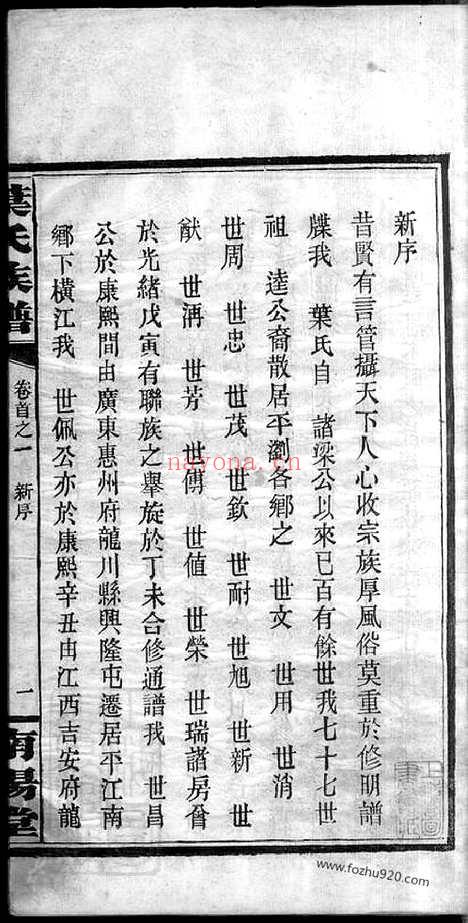 新序
昔賢有言管攝天下人心收宗族厚風俗莫重於修明譜
牒我 葉氏自 諸梁公以來已百有餘世我七十七世
祖 逵公裔散居平瀏各鄉之 世文 世用 世消
世周 世忠 世茂 世欽 世耐 世旭 世新 世
猷 世洅 世芳 世傳 世值 世榮 世瑞諸房會
於光緒戊寅有聯族之舉旋於丁未合修通譜我 世昌
公於康熙間由廣東惠州府龍川縣興隆屯遷居平江南
鄉下橫江我 世佩公亦於康熙辛丑由江西吉安府龍
葉氏族譜
卷首之一 新序
二
南陽堂
nayona.cn
www.fozhu920.com